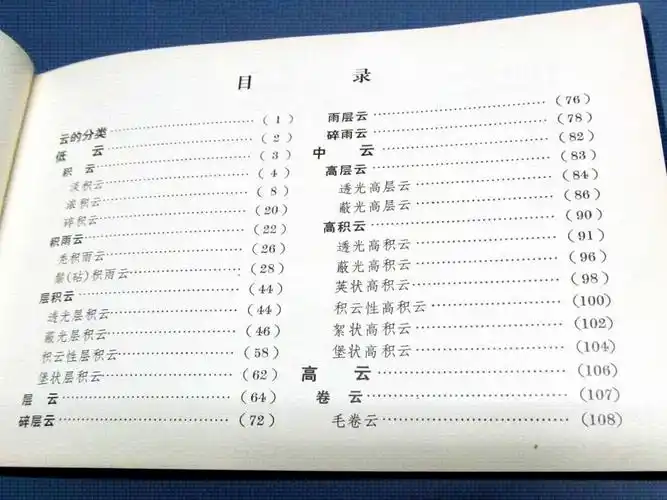 目 录
云的分类 …… (1)
低 云 …… (2)
积 云 …… (3)
淡积云 …… (4)
浓积云 …… (8)
碎积云 …… (20)
积雨云 …… (22)
秃积雨云 …… (26)
鬃(砧)积雨云 …… (28)
层积云 …… (44)
透光层积云 …… (44)
蔽光层积云 …… (46)
积云性层积云 …… (58)
堡状层积云 …… (62)
层 云 …… (64)
碎层云 …… (72)
雨层云 …… (76)
碎雨云 …… (78)
中 云 …… (82)
高层云 …… (83)
透光高层云 …… (84)
蔽光高层云 …… (86)
高积云 …… (90)
透光高积云 …… (91)
蔽光高积云 …… (96)
荚状高积云 …… (98)
积云性高积云 …… (100)
絮状高积云 …… (102)
堡状高积云 …… (104)
高 云 …… (106)
卷 云 …… (107)
毛卷云 …… (108)